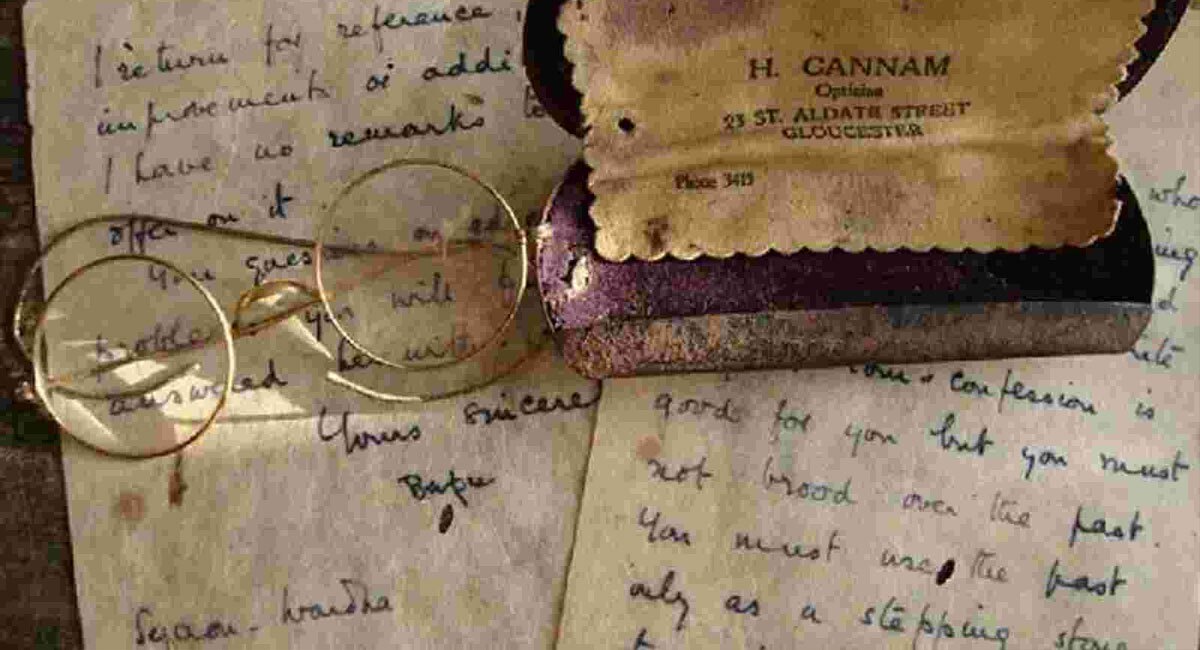 I return for reference
improvements or addi
I have no remarks to
offer on it
You
will
answered
Yours sincere
Bapu
Segaon-Wardha
H. CANNAM
Optician
23 ST. ALDATE STREET
GLOUCESTER
Phone 3415
who
ing
confession is
good for you but you must
not brood over the past.
You must use the past
only as a stepping stone